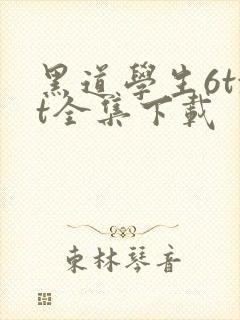 黑道學生6tx
t全集下載
東林琴音